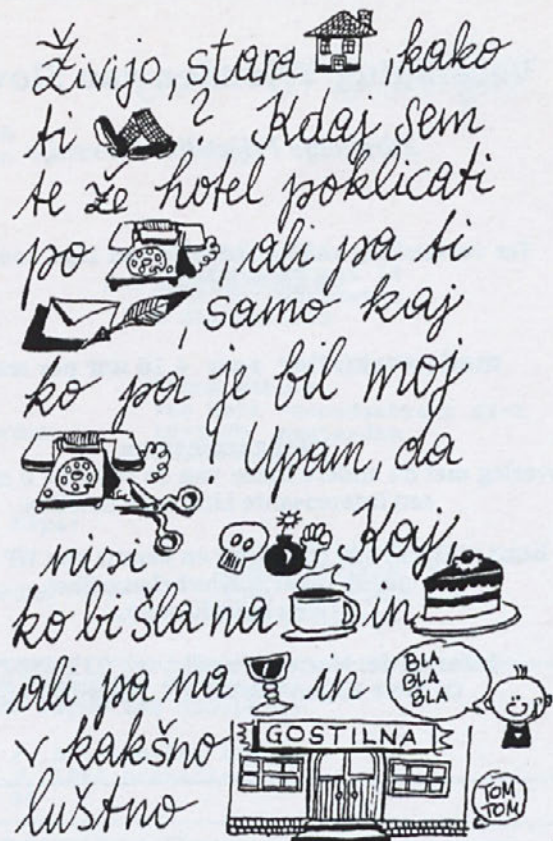 Živijo, stara , kako
ti ? Kdaj sem
te že hotel poklicati
po , ali pa ti
, samo kaj
ko pa je bil moj
! Upam, da
nisi Kaj,
ko bi šla na in
ali pa na in
BLA
BLA
BLA
v kakšno
GOSTILNA
luštno
TOM
TOM